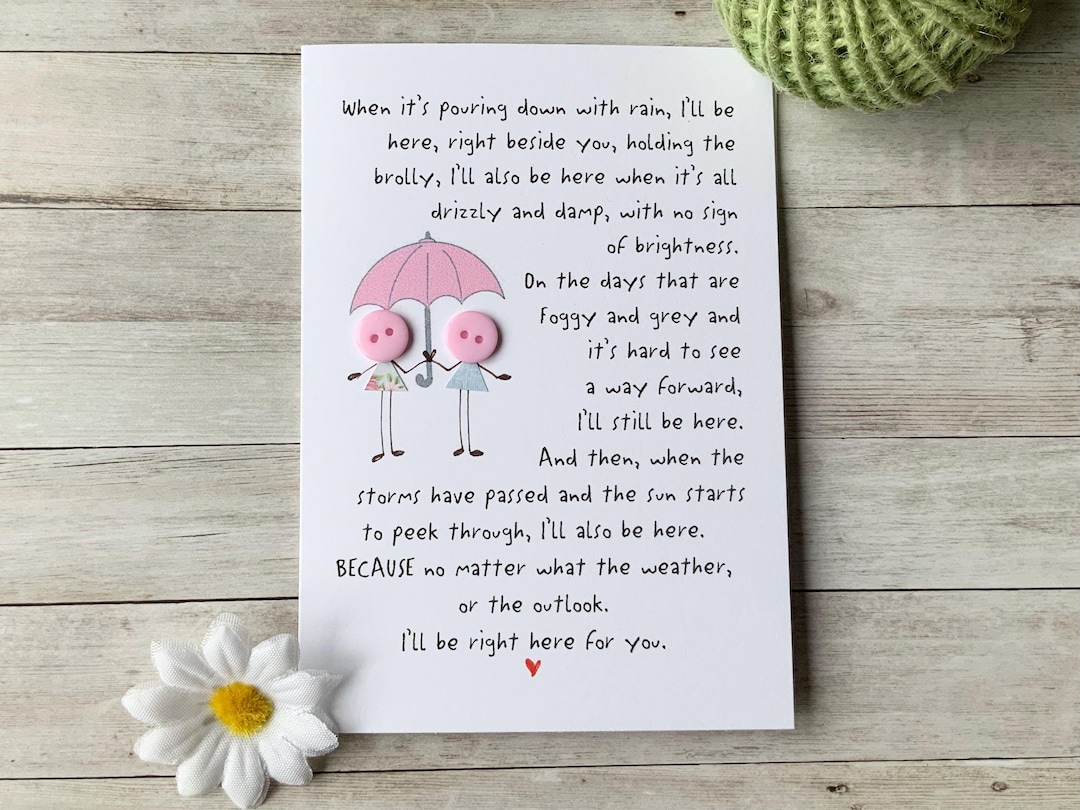 When it's pouring down with rain, I'll be
here, right beside you, holding the
brolly, I'll also be here when it's all
drizzly and damp, with no sign
of brightness.
On the days that are
foggy and grey and
it's hard to see
a way forward,
I'll still be here.
And then, when the
storms have passed and the sun starts
to peek through, I'll also be here.
BECAUSE no matter what the weather,
or the outlook.
I'll be right here for you.